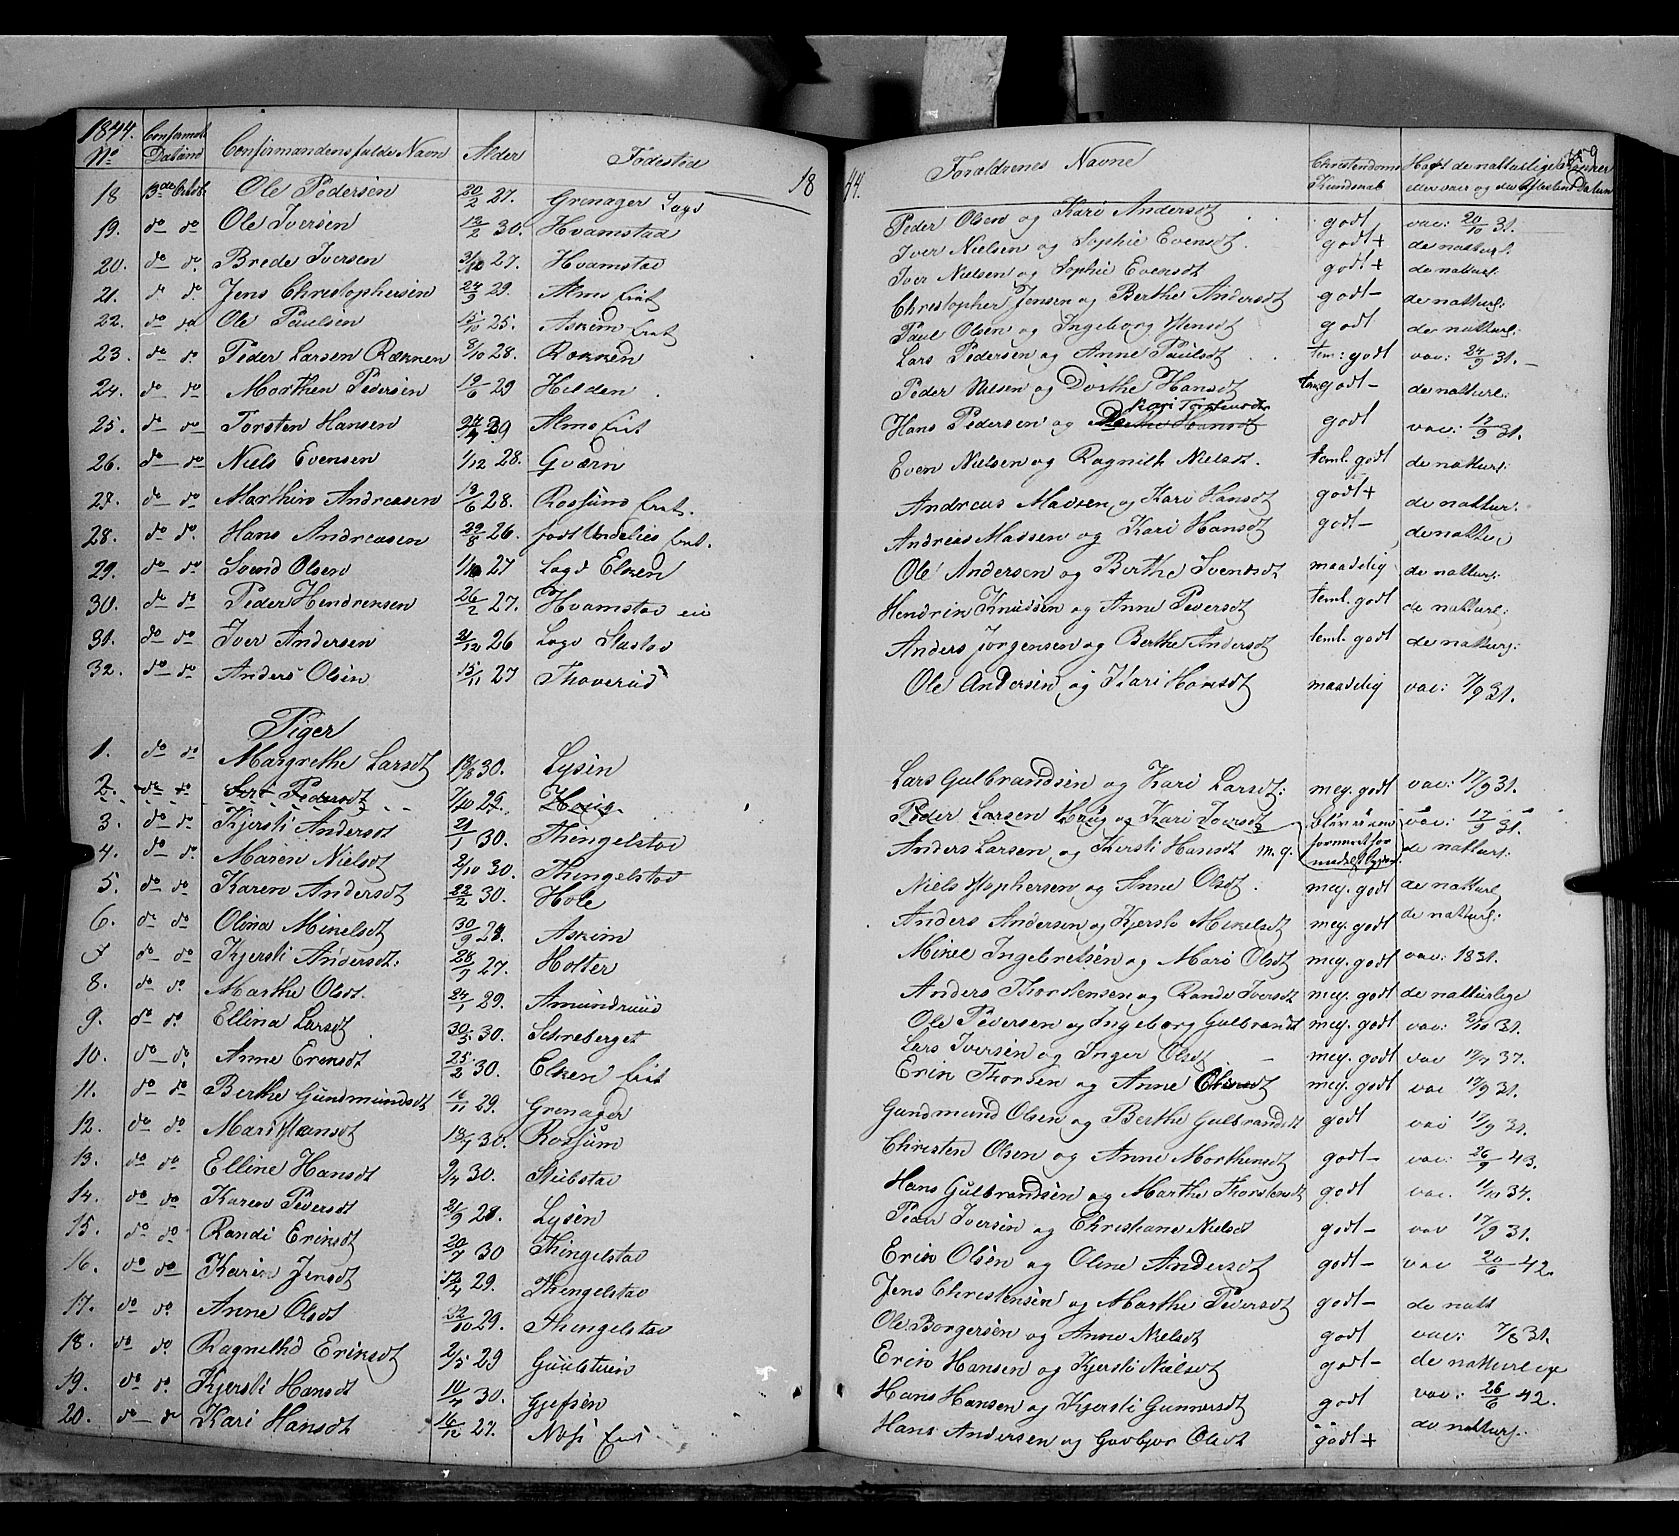 1844. Confirmat. Confirmandens fulde Navn Alder Fødested
No Datum
18 3de Octob. Ole Pedersen 20/2 27. Grenager Lagd
19. do do Ole Iversen 12/2 30. Hvamstad
20. do do Brede Iversen 3/10 27. Hvamstad
21. do do Jens Christophersen 24/9 29. Alms Eiet
22. do do Ole Paulsen 15/10 25. Askim Eiet
23. do do Peder Larsen Røkken 8/10 28. Røkken
24. do do Morthen Pedersen 19/6 29 Hilden
25. do do Torsten Hansen 29 Alms Eiet
26. do do Niels Evensen 1/12 28. Gværn
27. do do Marthin Andreasen 13/6 28. Rossum Eiet.
28. do do Hans Andreasen 29/8 26. født Eiet.
29. do do Svend Olsen 27 Lagd Elken
30. do do Peder Hendreksen 26/2 27. Hvamstad eie
31. do do Iver Andersen 3/12 26 Lagd
32. do do Anders Olsen 15/11 27 Thoverud
Piger
1. do do Margrethe Larsdt 18/8 30. Lysen
2. do do Siri Pedersdt 7/10 25 Houg
3. do do Kjersti Andersdt 21/1 30. Thingelstad
4. do do Maren Nielsdt 2/10 30. Thingelstad
5. do do Karen Andersdt 22/2 30. Hole
6. do do Olina Mikelsdt 30/9 28. Askim
7 do do Kjersti Andersdt: 27. Holter
8. do do Marthe Olsdt. 24/1 29. Amundruud
9. do do Ellina Larsdt 30/3 30. Schreberget
10. do do Anne Eriksdt 25/2 30. Elken Eiet
11. do do Berthe Gundmundsdt 16/11 29. Grenager
12. do do Mari Hansdt 18/7 30. Rossum
13. do do Elline Hansdt 9/4 30. Stubstad
14. do do Karen Pedersdt 21/9 28. Lysen
15. do do Randi Eriksdt 20/7 30 Thingelstad
16. do do Karin Jensdt 29. Thingelstad
17. do do Anne Olsdt 29. Thingelstad
18. do do Ragnethd Eriksdt 2/5 29 Guulstuen
19. do do Kjersti Hansdt 10/4 30. Gjefsen
20. do do Kari Hansdt 16/12 27. Næs Eiet
18
44. Forældrenes Navne Christendoms Havt de naturlige Kopper 159
Kundskab eller vacc og da Attestens Datum
Peder Olsen og Kari Andersdt godt vac: 20/10 31.
Iver Nielsen og Sophie Evensdt. godt+ de natturl.
Iver Nielsen og Sophie Evensdt godt+ de natturl.
Christopher Jensen og Berthe Andersdt godt- de natturl:
Paul Olsen og Ingeborg Hansdt godt de natturl:
Lars Pedersen og Anne Paulsdt tem: godt vac: 24/9 31.-
Peder Nilsen og Dorthe Hansdt tem godt- de natturl:
Kari Torstensdt
Hans Pedersen og godt vac: 17/9 31.
Even Nielsen og Ragnild Nielsdt. teml. godt de natturl:
Andreas Madsen og Kari Hansdt godt+ de natturl:
Andreas Madsen og Kari Hansdt godt- de natturl
Ole Andersen og Berthe Svendsdt maadelig de natturl:
Hendrik Knudsen og Anne Pedersdt teml. godt de natturl:
Anders Jørgensen og Berthe Andersdt teml. godt de natturl:
Ole Andersen og Kari Hansdt maadelig vac: 7/9 31.
Lars Gulbrandsen og Kari Larsdt: mey. godt vac: 17/9 31.
Peder Larsen Houg og Kari Iversdt vac: 17/9 31.
Anders Larsen og Kersti Hansdt m. g. de natturl:
Niels Hophersen og Anne Olsdt. mey. godt de natturl
Anders Andersen og Kjersto Mikelsdt mey. godt de natturl:
Mikel Ingebretsen og Mari Olsdt mey. godt vac: 1831.
Anders Thorstensen og Rande Iversdt mey. godt de natturlige
Ole Pedersen og Ingeborg Gulbrandsdt mey. godt vac: 2/10 31.
Lars Iversen og Inger Olsdt mey. godt vac 17/7 37.
Erik Thorsen og Anne Olsdt mey. godt vac 17/9 31.
Gundmund Olsen og Berthe Gulbrandsdt godt vac 17/9 31.
Christen Olsen og Anne Morthensdt godt- vac: 26/9 43.
Hans Gulbrandsen og Marthe Thorstensdt godt vac. 11/10 34.
Peder Iversen og Christiane Nielsdt godt- vac 17/9 31.
Erik Olsen og Oline Andersdt godt- vac 20/6 42.
Jens Christensen og Marthe Pedersdt godt- de natt
Ole Borgersen og Anne Nielsdt godt vac: 7/8 31.
Erik Hansen og Kjersti Nielsdt godt- de natturlige
Hans Hansen og Kjersti Gunnersdt godt vac: 26/6 42.
Hans Andersen og Gudbjor Olsdt godt+ de natturl: